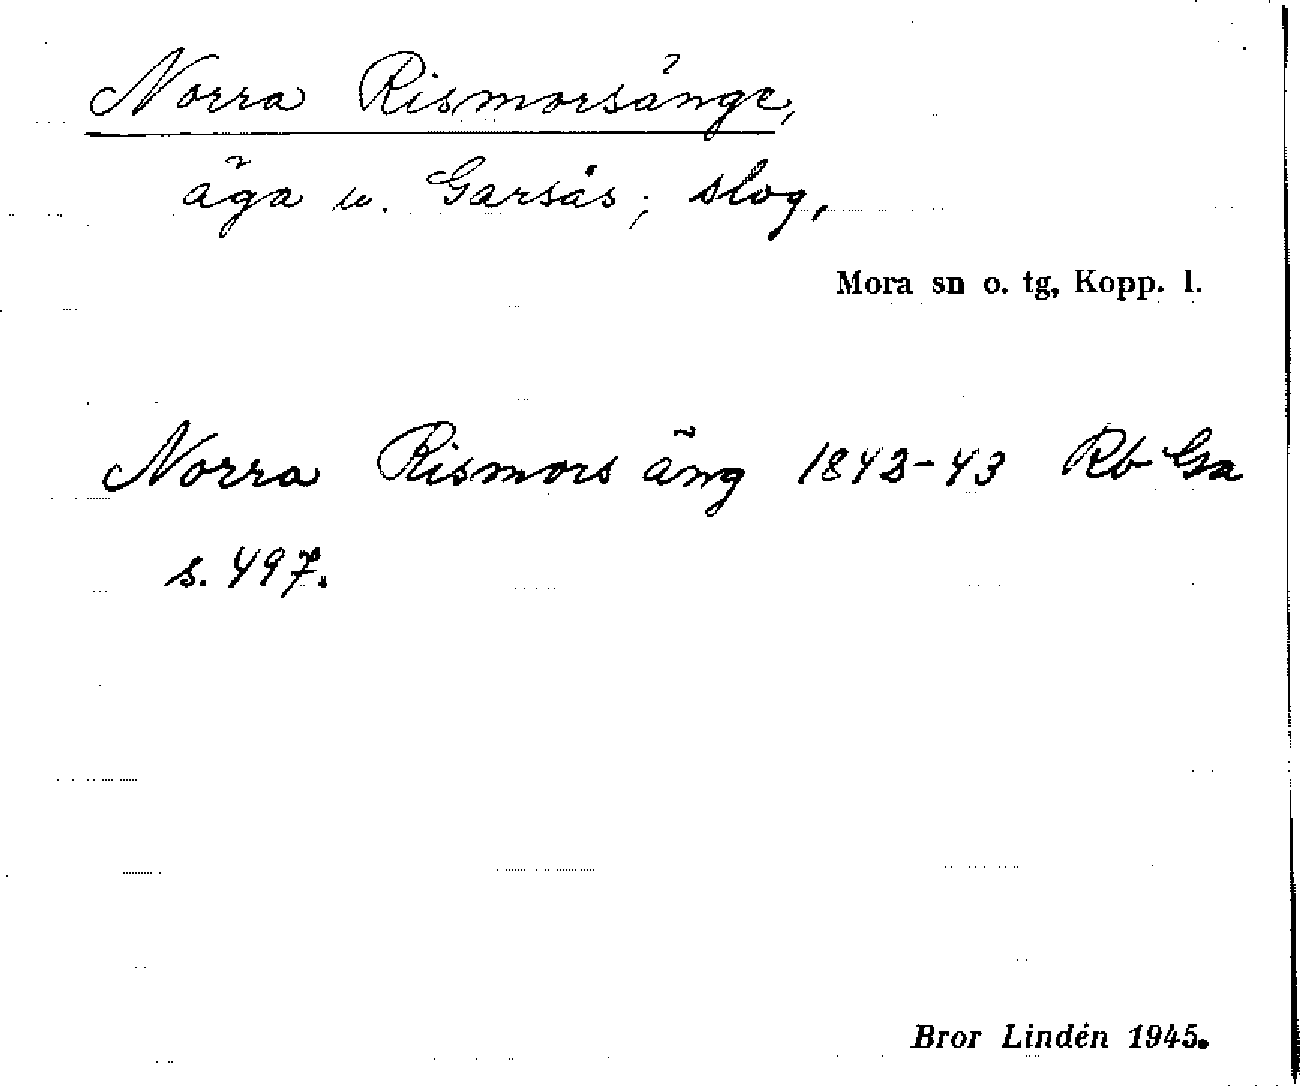 Norra Rismorsänge,
äga u. Garsås; slog,
Mora sn o. tg, Kopp. l.
Norra Rismors äng 1842-43 Rb Ga
s. 497.
Bror Lindén 1945.